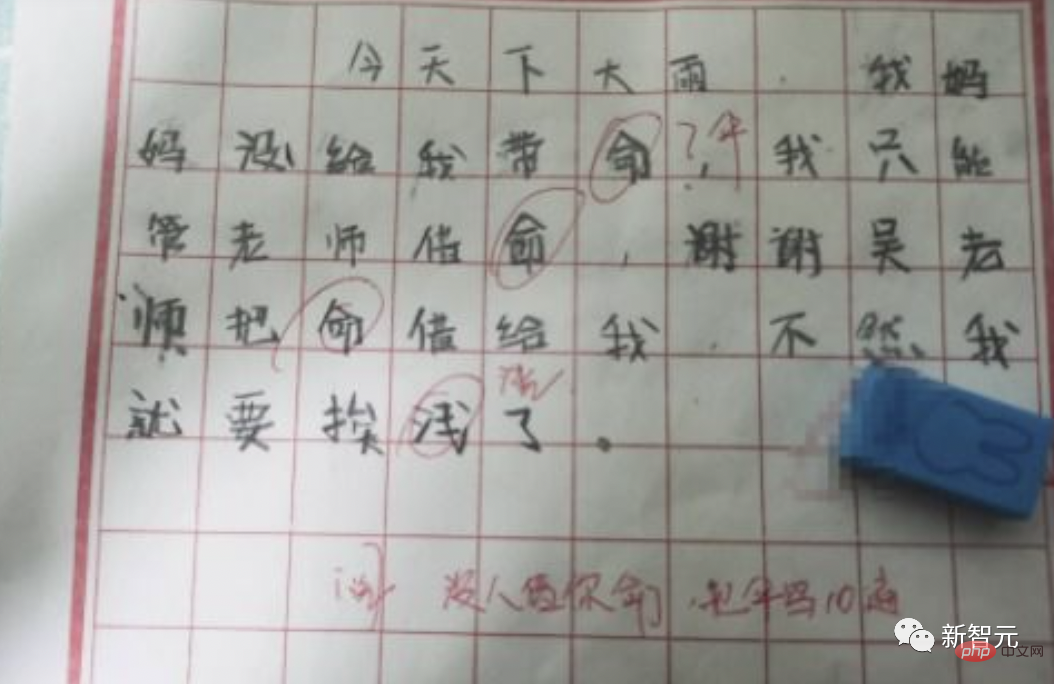 今天下大雨.我妈
妈没给我带命?伞,我只能
管老师借命,谢谢吴老
师把命借给我.不然我
就要挨浅了。
没人你命,把伞写10遍
新智元
php中文网